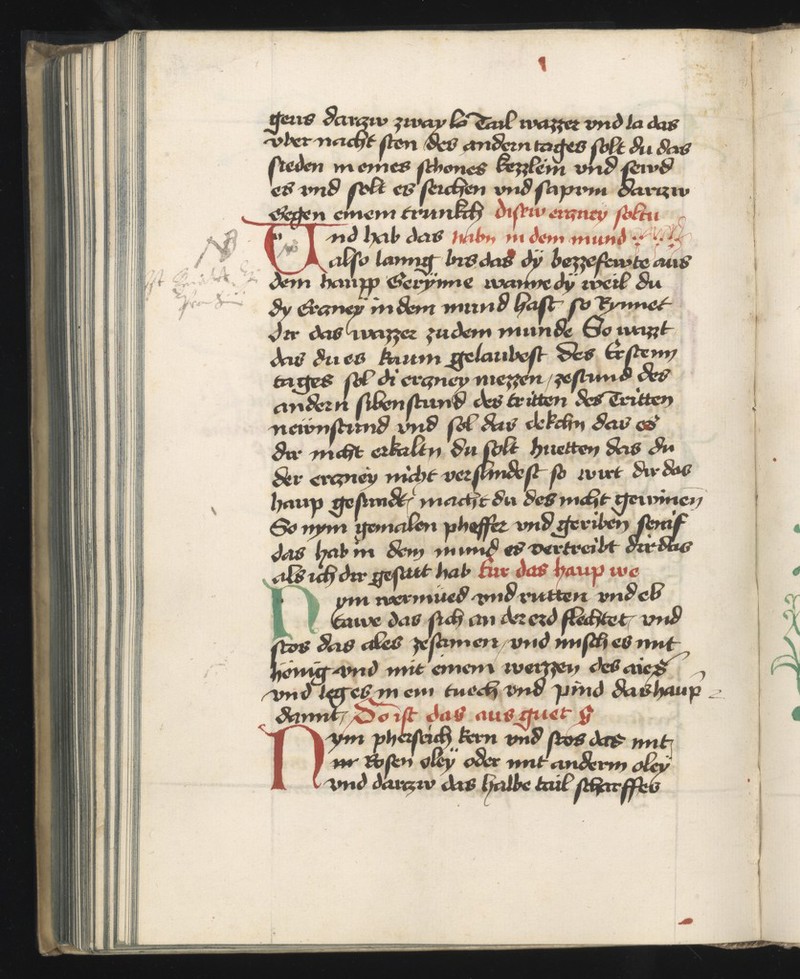 geus darzw zway la Tail wazzer vnd la das
vber nacht sten des andern tages solt du das
sieden in eines schones kezzlein vnd sewd
es vnd solt es seichen vnd darzw
Gegen einem trunkch disew erzney soltu
Vnd hab das habn in dem mund
also lanng bis das dy bezzefewte aus
dem haupp Gerynne wanne dy weil du
dy Erzney in dem mund hast so Rynnet
dir das wazzer zu dem munde So wazt
das du es kaum gelaubest Des Ersten
tages sol di erzney niezzen zestund des
andern sibenstund des tritten des Tritten
newnstund vnd sol das dekchn das es
dir nicht erkaltn du solt huetten das du
der erzney nicht verslindest so wirt dir das
haup gesundt macht du des nicht gewinen
So nym gemalen pheffer vnd geriben senif
das hab in dem mund es vertreibt dir das
als ich dir gesait hab fur das haup we
Nym wermued vnd rutten vnd eb
hawe das sich an der erd flechtet vnd
stos das ales zesamen vnd misch es mit
honig vnd mit einem weizzen des aies
vnd leg es in ein tuech vnd pind das haup
damit Do ist das aus guet
Nym phersich kern vnd stos das mit
nir Rosen oley oder mit anderm oley
vnd darzw das halbe tail scharffes